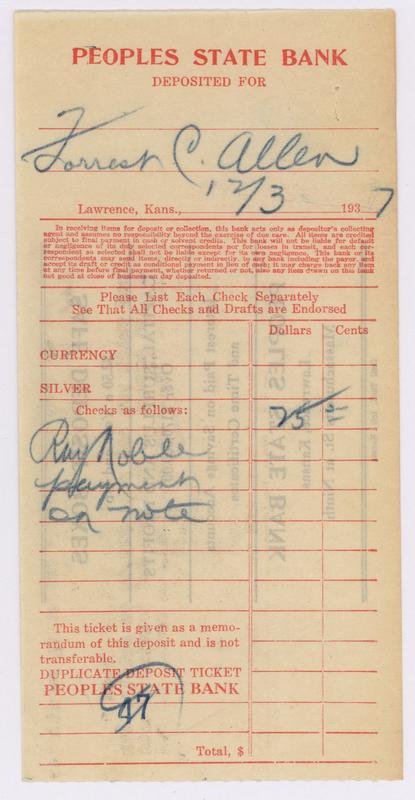 PEOPLES STATE BANK
DEPOSITED FOR
Forrest C. Allen
12/3
Lawrence, Kans., 1937
In receiving items for deposit or collection, this bank acts only as depositor's collecting
agent and assumes no responsibility beyond the exercise of due care. All items are credited
subject to final payment in cash or solvent credits. This bank will not be liable for default
or negligence of its duly selected correspondents nor for losses in transit, and each cor-
respondent so selected shall not be liable except for its own negligence. This bank or its
correspondents may send items, directly or indirectly, to any bank including the payor, and
accept its draft or credit as conditional payment in lieu of cash; it may charge back any item
at any time before final payment, whether returned or not, also any item drawn on this bank
not good at close of business on day deposited.
Please List Each Check Separately
See That All Checks and Drafts are Endorsed
Dollars Cents
CURRENCY
SILVER
Checks as follows: 25
Ray Noble
payment
on note
This ticket is given as a memo-
randum of this deposit and is not
transferable.
DUPLICATE DEPOSIT TICKET
PEOPLES STATE BANK
47
Total, $